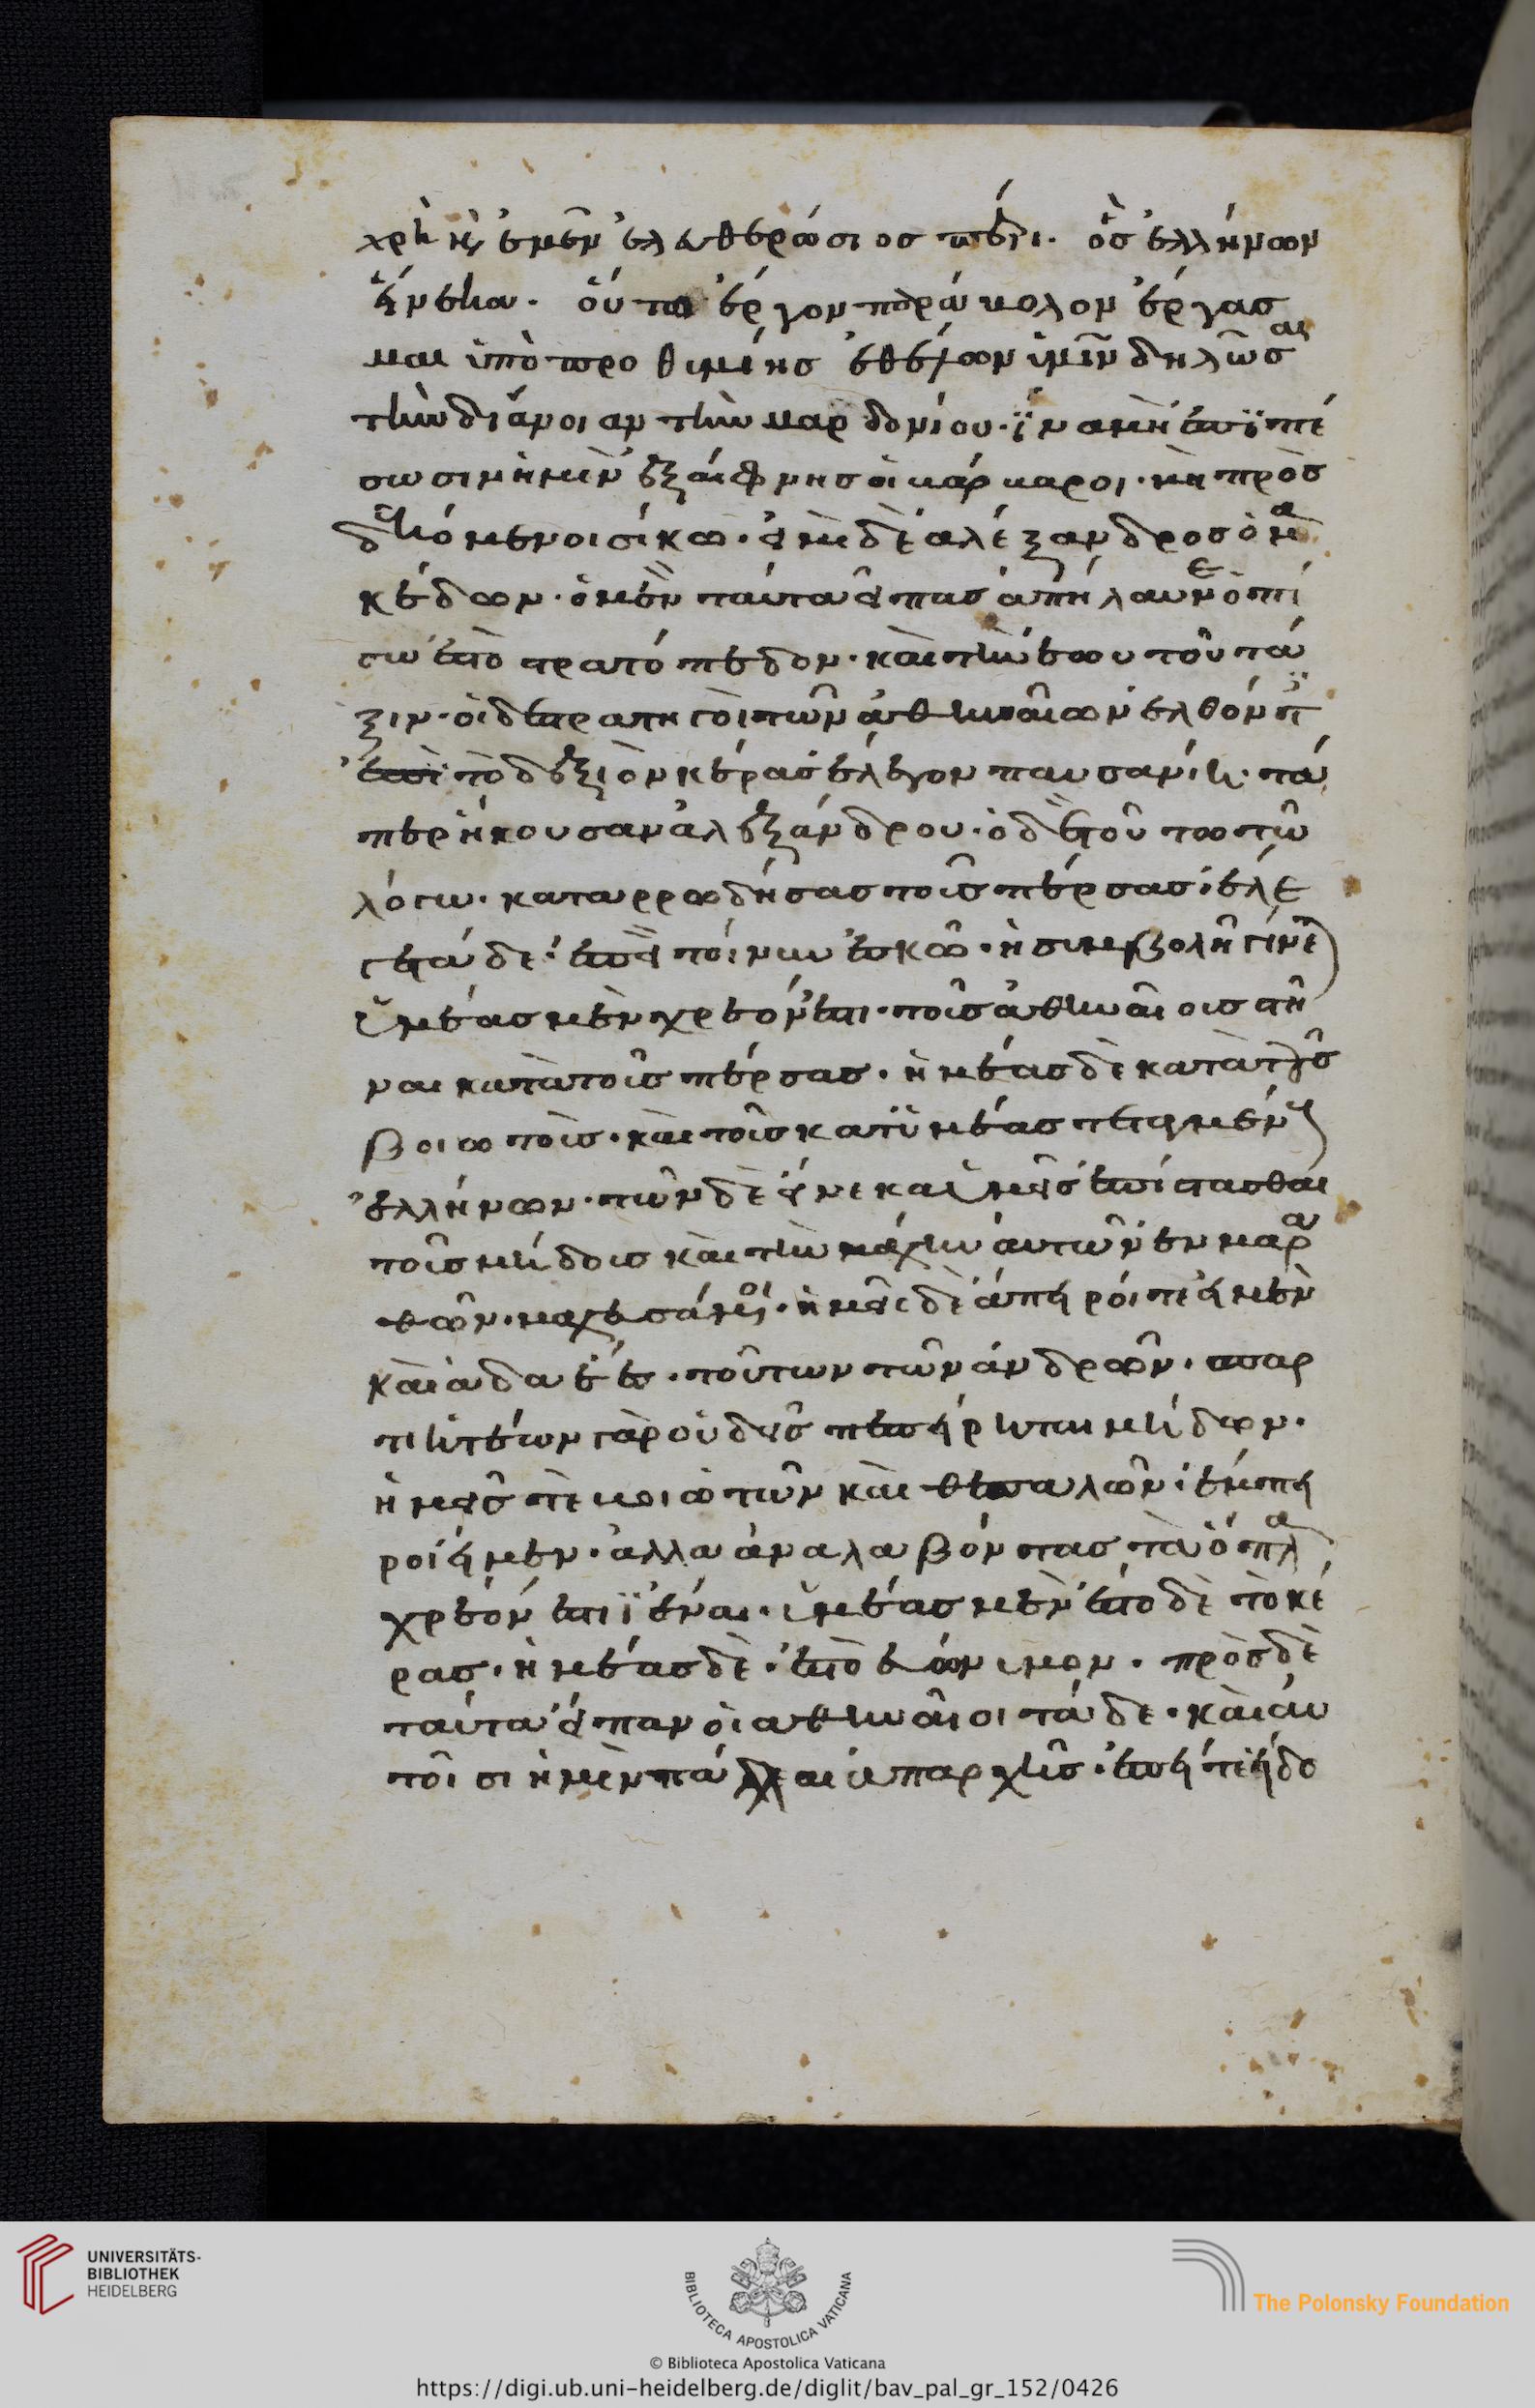 χρὴ κ, ἐμεῦ ἐλευθερώσιος πέρι. ὃς ἑλλήνων
εἵνεκα. οὕτω ἔργον παράβολον ἔργασ
μαι ὑπὸ προθυμίης ἐθέλων ὑμῖν δηλῶσαι
τὴν διάνοιαν τὴν μαρδονίου. ἵνα μὴ ἐπιπέ
σωσι ὑμῖν ἐξαίφνης οἱ βάρβαροι. μὴ πρὸσ
δεκόμενοισί κω. εἰμὶ δὲ ἀλέξανδρος ὁ μα
κεδων. ὁ μὲν ταῦτα εἴπας ἀπήλαυνε ὀπί
σω ἐς τὸ στρατόπεδον. καὶ τὴν ἑωυτοῦ τά
ξιν. οἱ δὲ στρατηγοὶ τῶν ἀθηναίων ἐλθόντες
ἐπὶ τὸ δεξιὸν κέρας ἔλεγον παυσανίη. τά
περ ἤκουσαν ἀλεξάνδρου. ὁ δὲ τούτω τῶ
λόγω. καταρρωδήσας τοὺς πέρσας. ἔλε
γε τάδε. ἐπεὶ τοίνυν ἐς κῶ. ἡ συμβολὴ γίνεται
ὑμέας μὲν χρεόν ἐστι. τοὺς ἀθηναίους στῆ
ναι κατὰ τοὺς πέρσας. ἡμέας δὲ κατὰ τοὺς
βοιωτούς. καὶ τοὺς κατ' ὑμέας τεταγμένους
ἑλλήνων. τῶνδε εἵνεκα ὑμεῖς ἐπίστασθαι
τοὺς μήδους καὶ τὴν μάχην αὐτῶν ἐν μαρα
θῶν. μαχεσάμενοι. ἡμεῖς δὲ ἄπειροί τε εἰμὲν
καὶ ἀδαέες. τούτων τῶν ἀνδρῶν. σπαρ
τιητέων γὰρ οὐδεὶς πεπείρηται μήδων.
ἡμεῖς τε βοιωτῶν καὶ θεσσαλῶν. ἔμπει
ροί εἰμεν. ἀλλὰ ἀναλαβόντας τὰ ὅπλα
χρεόν ἐστι ἰέναι. ὑμέας μὲν ἐς τόδε τὸ κέ
ρας. ἡμέας δὲ. ἐς τὸ εὐώνυμον. πρὸς δὲ
ταῦτα εἶπαν οἱ ἀθηναῖοι τάδε. καὶ αὐ
τοῖσι ἡμῖν πάλαι ἀπαρχῆς. ἐπείτε εἴδο